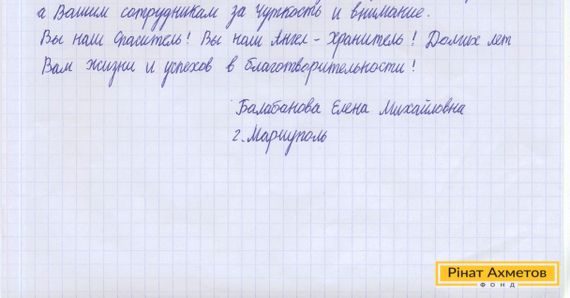 а Вашим сотрудникам за чуткость и внимание.
Вы наш Спаситель! Вы наш Ангел - Хранитель! Долгих лет
Вам жизни и успехов в благотворительности!
Балабанова Елена Михайловна
г. Мариуполь
Рінат Ахметов
ФОНД